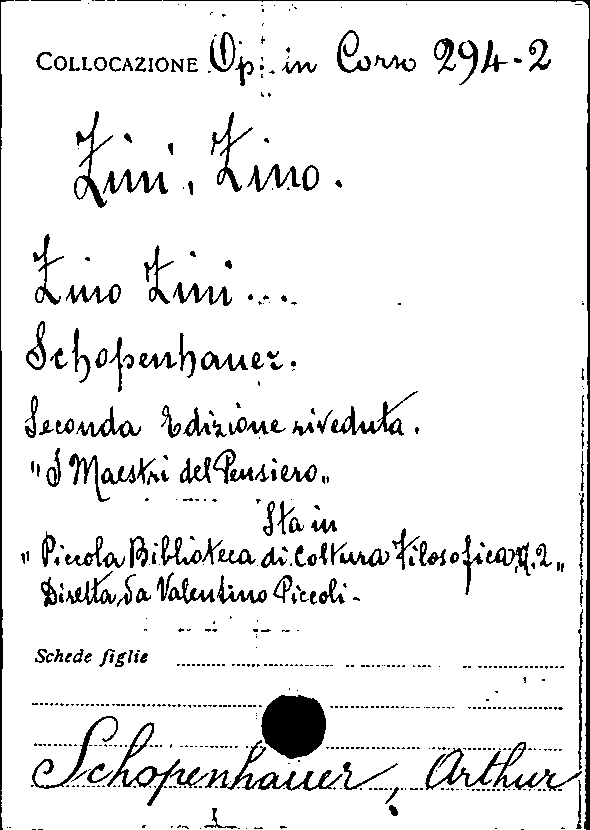 COLLOCAZIONE Op. in Corso 294-2
Zini, Zino.
Zino Zini...
Schopenhauer.
Seconda Edizione riveduta.
"I Maestri del Pensiero„
Sta in
"Piccola Biblioteca di Coltura Filosofica N. 2„
Diretta da Valentino Piccoli-
Schede figlie
Schopenhauer, Arthur